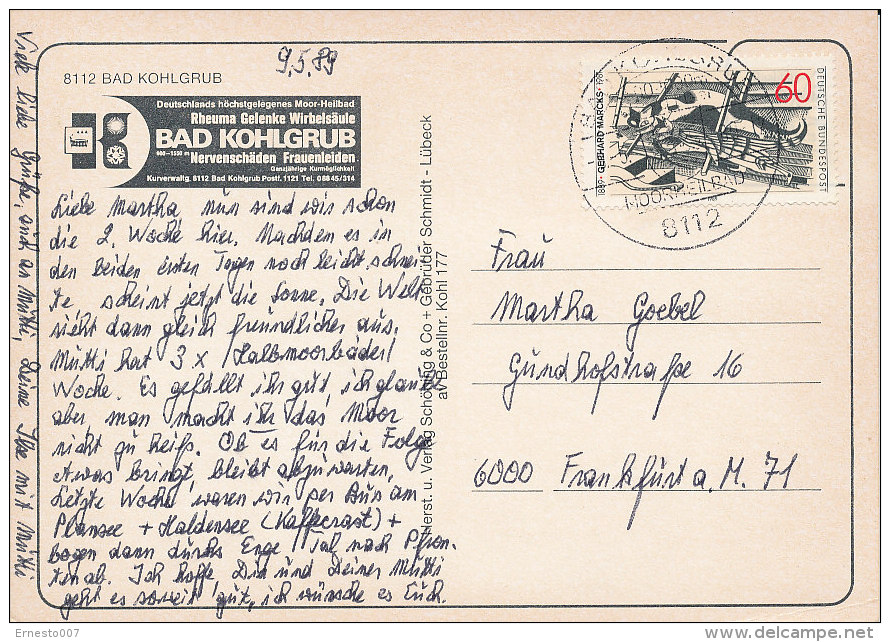 9.5.89
8112 BAD KOHLGRUB
Deutschlands höchstgelegenes Moor-Heilbad
Rheuma Gelenke Wirbelsäule
BAD KOHLGRUB
Nervenschäden Frauenleiden
Ganzjährige Kurmöglichkeit
Kurverwaltg. 8112 Bad Kohlgrub Postf. 1121 Tel. 08845/314
Liebe Martha nun sind wir schon
die 2. Woche hier. Nachdem es in
den beiden ersten Tagen noch leicht schnei
te scheint jetzt die Sonne. Die Welt
sieht dann gleich freundlicher aus.
Mutti hat 3 x Halbmoorbäder/
Woche. Es gefällt ihr gut, ich glaube
aber, man macht ihr das Moor
nicht zu heiß. Ob es für die Folge
etwas bringt, bleibt abzuwarten.
Letzte Woche waren wir per Bus am
Plansee + Haldensee (Kafferast) +
bogen dann durchs Enge Tal nach Pfron-
ten ab. Ich hoffe Dir und Deiner Mutti
geht es soweit gut, ich wünsche es Euch.
Viele liebe Grüße, auch an Mutti, Deine Ilse mit Mutti
Herst. u. Verlag Schöning & Co + Gebrüder Schmidt - Lübeck
av Bestellnr. Kohl 177
60
DEUTSCHE BUNDESPOST
GERHARD MARCKS
MOORHEILBAD
8112
Frau
Martha Goebel
Gundhofstraße 16
6000 Frankfurt a. M. 71
Ernesto007
delcampe.net